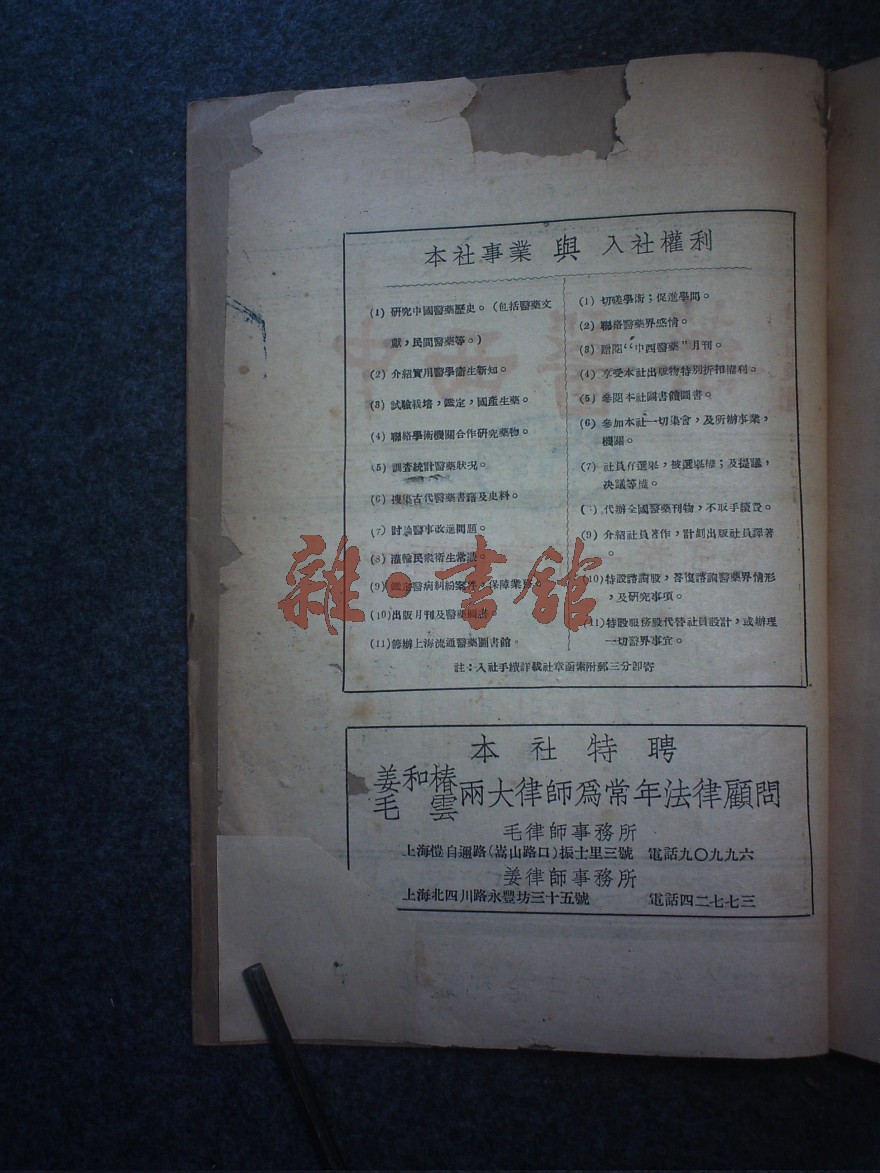 本社事業 與 入社權利
(1) 研究中國醫藥歷史。(包括醫藥文
獻，民間醫藥等。)
(2) 介紹實用醫學衛生新知。
(3) 試驗栽培，鑑定，國產生藥。
(4) 聯絡學術機關合作研究藥物。
(5) 調查統計醫藥狀況。
(6) 搜集古代醫藥書籍及史料。
(7) 討論醫事改進問題。
(8) 灌輸民衆衛生常識。
(9) 鑑定醫病糾紛案件，保障業務。
(10) 出版月刊及醫藥圖書。
(11) 籌辦上海流通醫藥圖書館。
(1) 切磋學術；促進學問。
(2) 聯絡醫藥界感情。
(3) 贈閱“中西醫藥”月刊。
(4) 享受本社出版物特別折扣權利。
(5) 參閱本社圖書館圖書。
(6) 參加本社一切集會，及所辦事業，
機關。
(7) 社員有選舉，被選舉權；及提議，
決議等權。
代辦全國醫藥刊物，不取手續費。
(9) 介紹社員著作，計劃出版社員譯著
。
(10) 特設諮詢股，答復諮詢醫藥界情形
，及研究事項。
(11) 特設服務股代替社員設計，或辦理
一切醫界事宜。
註：入社手續詳載社章函索附郵三分卽寄
本社特聘
姜和椿
毛雲
兩大律師爲常年法律顧問
毛律師事務所
上海愷自邇路(嵩山路口)振士里三號 電話九〇九九六
姜律師事務所
上海北四川路永豐坊三十五號 電話四二七七三
雜·書館